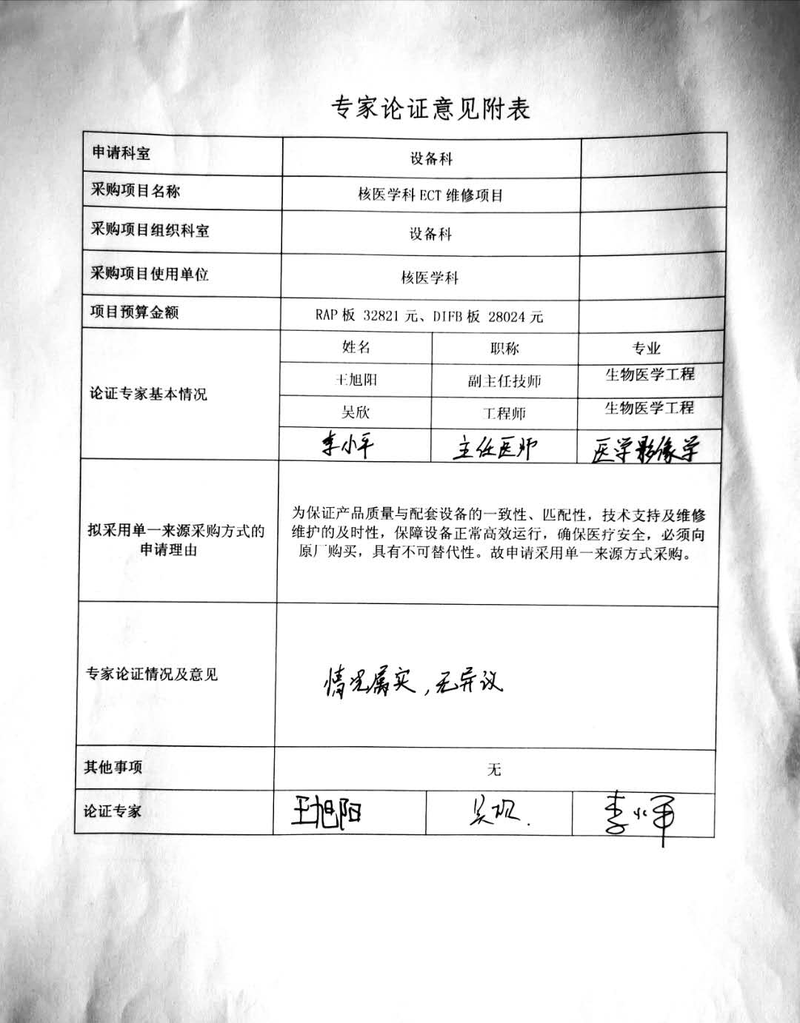 专家论证意见附表
申请科室 设备科
采购项目名称 核医学科 ECT 维修项目
采购项目组织科室 设备科
采购项目使用单位 核医学科
项目预算金额 RAP 板 32821 元、DIFB 板 28024 元
论证专家基本情况
姓名 职称 专业
王旭阳 副主任技师 生物医学工程
吴欣 工程师 生物医学工程
李小平 主任医师 医学影像学
拟采用单一来源采购方式的
申请理由
为保证产品质量与配套设备的一致性、匹配性，技术支持及维修
维护的及时性，保障设备正常高效运行，确保医疗安全，必须向
原厂购买，具有不可替代性。故申请采用单一来源方式采购。
专家论证情况及意见 情况属实，无异议
其他事项 无
论证专家 王旭阳 吴欣